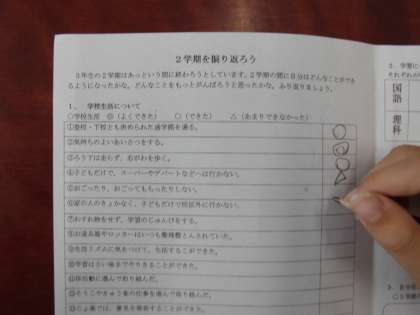 2学期を振り返ろう
3年生の2学期はあっという間に終わろうとしています。2学期の間に自分はどんなことができ
るようになったかな。どんなことをもっとがんばろうと思ったかな。ふり返りましょう。
1. 学校生活について
○学校生活 ◎（よくできた） ○（できた） △（あまりできなかった）
①登校・下校とも決められた通学路を通る。
②気持ちのよいあいさつをする。
③ろう下は走らず、右がわを歩く。
④子どもだけで、スーパーやデパートなどへは行かない。
⑤おごったり、おごってもらったりしない。
⑥家の人のきょかなく、子どもだけで校区外に行かない。
⑦わすれ物をせず、学習のじゅんびをする。
⑧お道具箱やロッカーはいつも整理整とんされていた。
⑨生活リズムに気をつけて、生活することができた。
⑩学習はさい後までやりきることができた。
に進んで取り組んだ。
そうじやきゅう食の仕事を進んで取り組んだ。
では、意見を発表することができた。
国語
理科